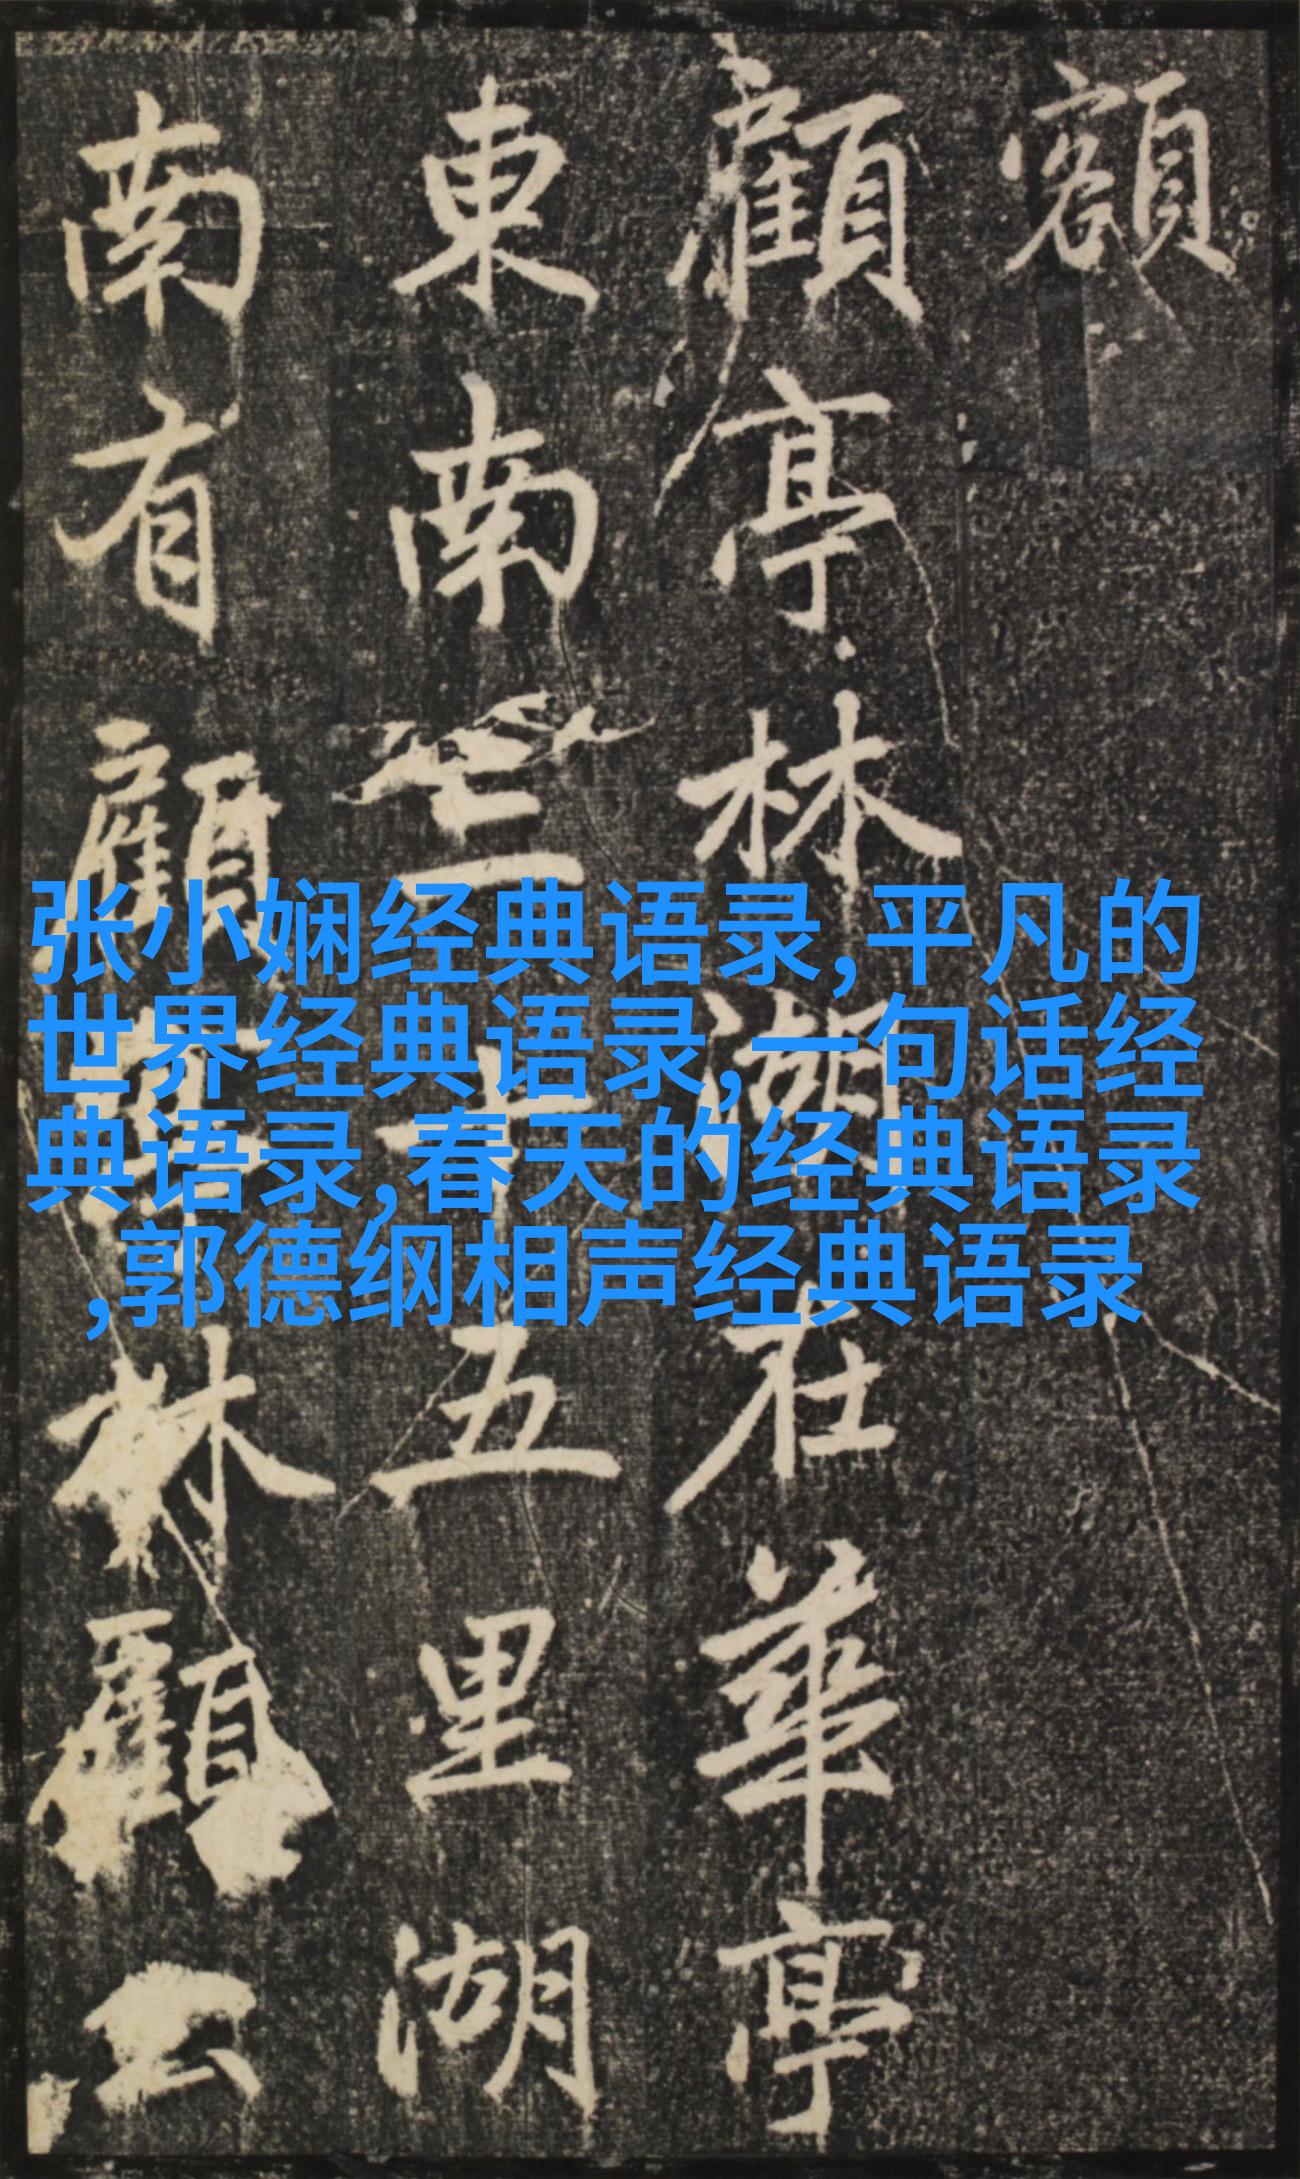 額
顧亭林湖在華亭
東南三十五里湖
南有顧亭林顧公
张小娴经典语录,平凡的
世界经典语录,一句话经
典语录,春天的经典语录
,郭德纲相声经典语录